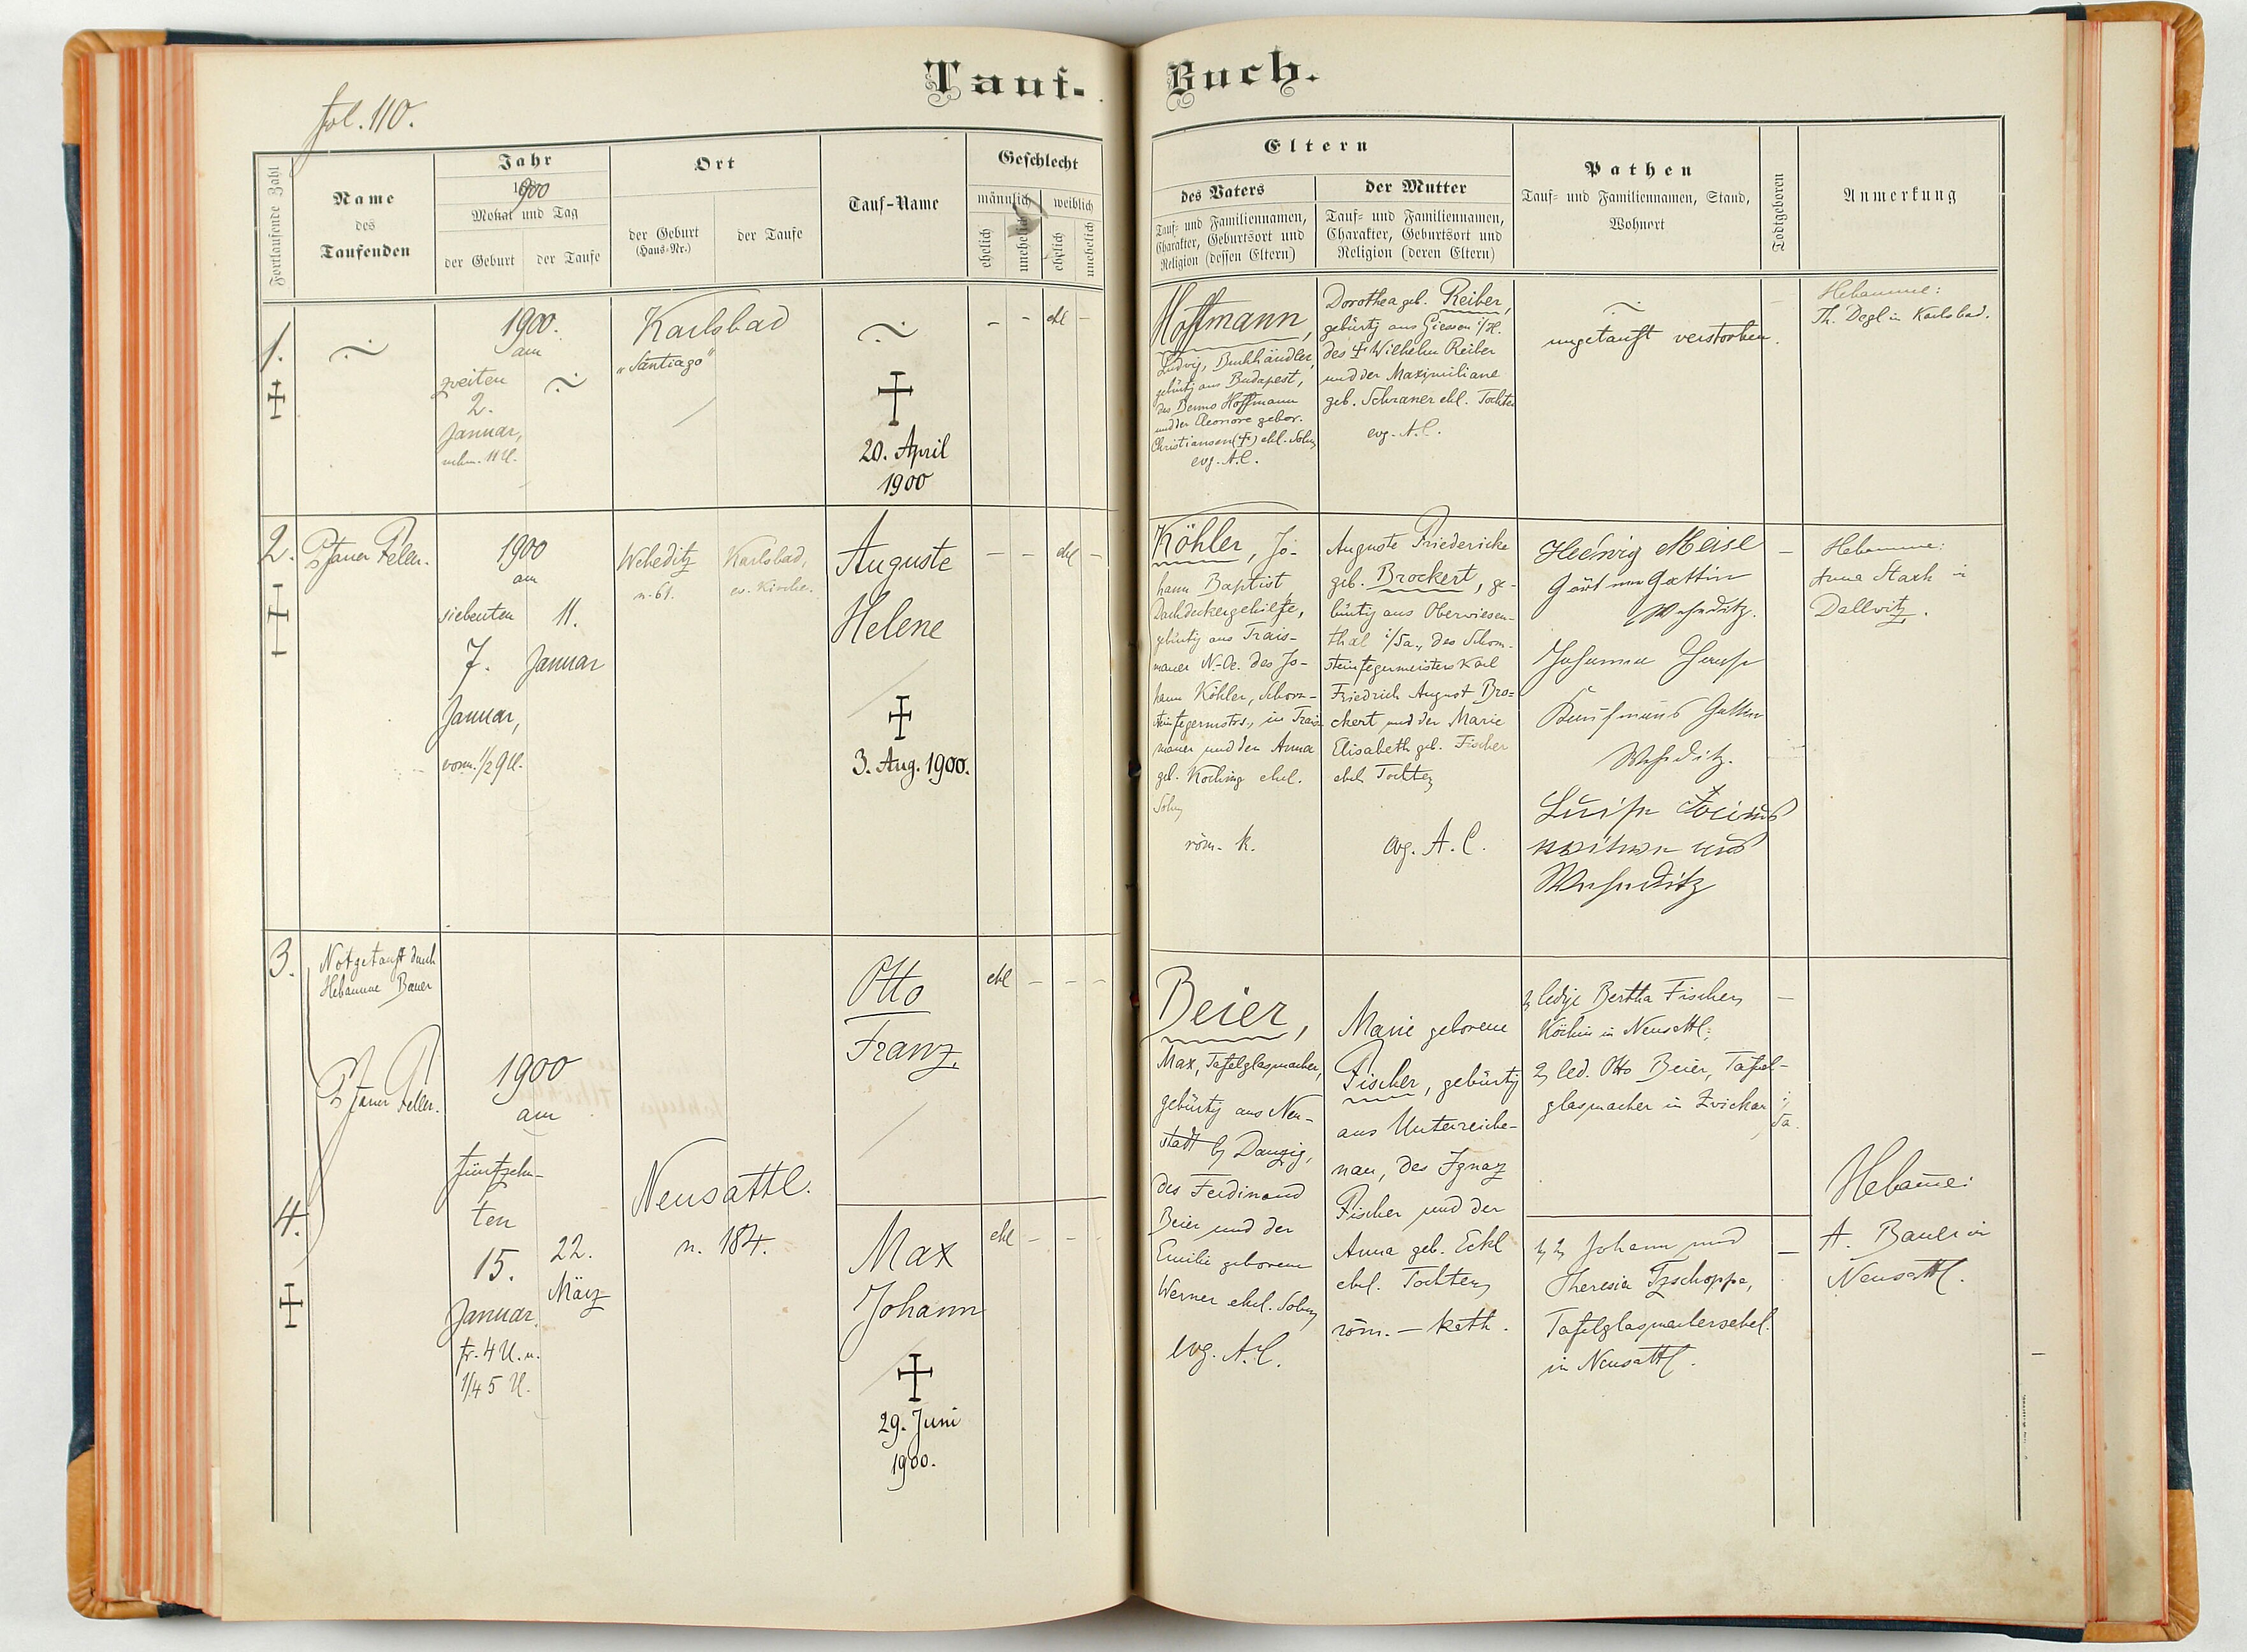 Tauf- Buch.
fol. 110.
Fortlaufende Zahl
Name
des
Taufenden
Jahr
1900
Monat und Tag
der Geburt
der Taufe
Ort
der Geburt
(Haus-Nr.)
der Taufe
Tauf-Name
Geschlecht
männlich
weiblich
ehelich
unehelich
ehelich
unehelich
Eltern
des Vaters
Tauf- und Familiennamen,
Charakter, Geburtsort und
Religion (dessen Eltern)
der Mutter
Tauf- und Familiennamen,
Charakter, Geburtsort und
Religion (deren Eltern)
Pathen
Tauf- und Familiennamen, Stand,
Wohnort
Todtgeboren
Anmerkung
1.
1900.
am
zweiten
2.
Januar,
nchm. 11 U.
Karlsbad
"Santiago"
20. April
1900
– – ehl –
Hoffmann,
Ludwig, Buchhändler,
gebürtig aus Budapest,
des Benno Hoffmann
und der Eleonore gebor.
Christiansen (†) ehl. Sohn
evg. A.C.
Dorothea geb. Reiber,
gebürtig aus Giessen i/H.
des † Wilhelm Reiber
und der Maximiliane
geb. Schraner ehl. Tochter
evg. A.C.
ungetauft verstorben.
Hebamme:
Th. Degl in Karlsbad.
2.
Pfarrer Feller.
1900
am
siebenten
7.
Januar,
vorm. 1/2 9 U.
11.
Januar
Weheditz
n. 61.
Karlsbad,
ev. Kirche.
Auguste
Helene
3. Aug. 1900.
– – ehl –
Köhler, Jo-
hann Baptist,
Dachdeckergehilfe,
gebürtig aus Trais-
mauer N.-Oe. des Jo-
hann Köhler, Schorn-
steinfegermstrs., in Trais-
mauer und der Anna
geb. Koching ehel.
Sohn
röm. k.
Auguste Friedericke
geb. Brockert, ge-
bürtig aus Oberwiesen-
thal i/Sa., des Schorn-
steinfegermeisters Karl
Friedrich August Bro-
ckert und der Marie
Elisabeth geb. Fischer
ehel. Tochter
evg. A.C.
Hedwig Meisl
Gattin
Weheditz.
Johanna
Kaufmanns Gattin
Weheditz.
Luise
Weheditz
–
Hebamme:
Anna Stark in
Dallwitz.
3.
Notgetauft durch
Hebamme Bauer
Pfarrer Feller.
1900
am
fünfzehn-
ten
15.
Januar.
fr. 4 U. u.
1/4 5 U.
22.
März
Neusattl.
n. 184.
Otto
Franz.
ehl – – –
Beier,
Max, Tafelglasmacher,
gebürtig aus Neu-
stadt b/ Danzig,
des Ferdinand
Beier und der
Emilie geborene
Werner ehel. Sohn
evg. A.C.
Marie geborene
Fischer, gebürtig
aus Unterreiche-
nau, des Ignaz
Fischer und der
Anna geb. Eckl
ehel. Tochter
röm.-kath.
1) ledige Bertha Fischer,
Köchin in Neusattl;
2) led. Otto Beier, Tafel-
glasmacher in Zwickau i/
Sa.
–
4.
Max
Johann
29. Juni
1900.
ehl – – –
1) 2) Johann und
Theresia Tzschoppe,
in Neusattl.
–
Hebamme:
A. Bauer in
Neusattl.